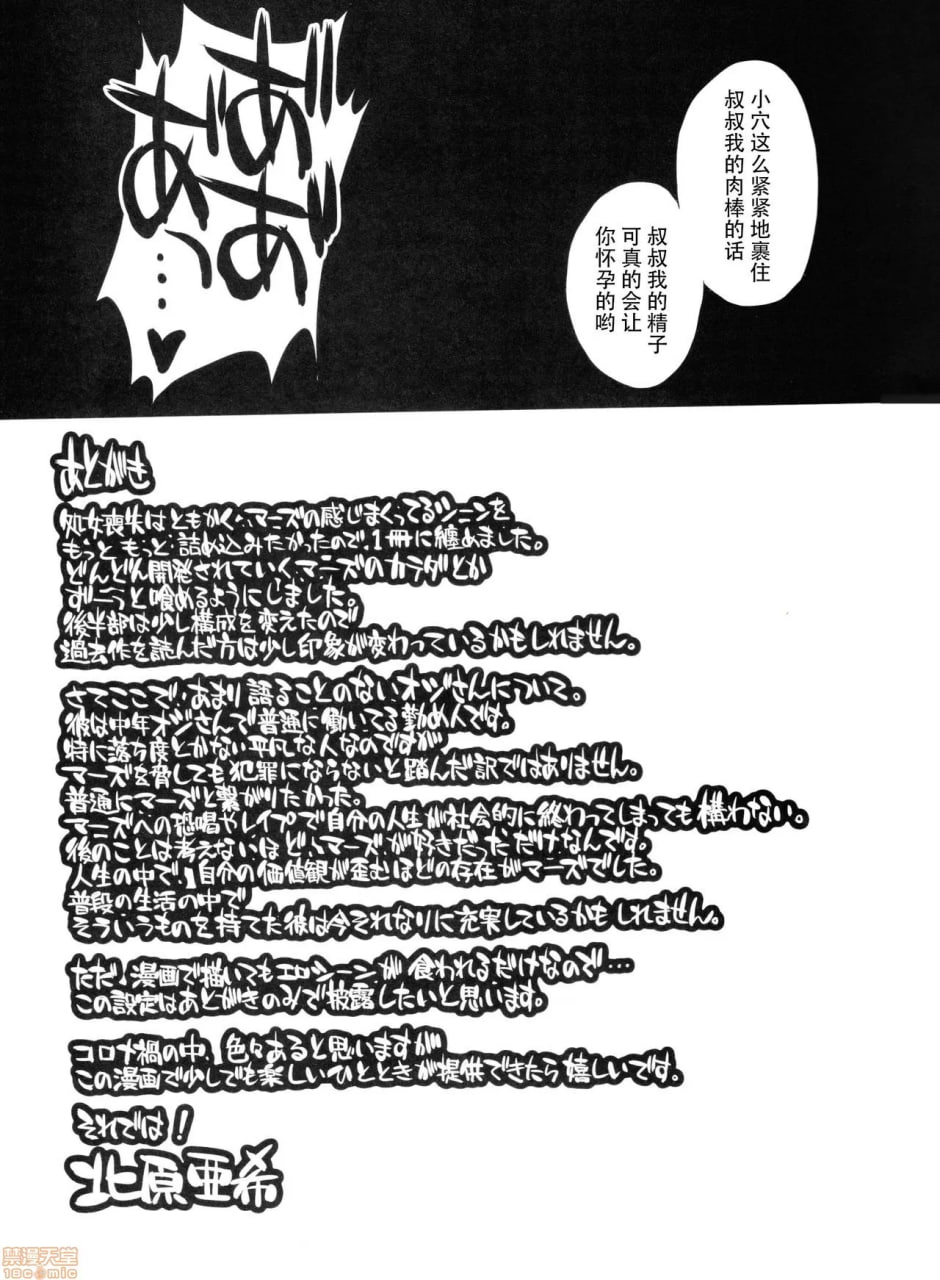 小穴这么紧紧地裹住
叔叔我的肉棒的话
叔叔我的精子
可真的会让
你怀孕的哟
あとがき
処女喪失はともかく、マーズの感じまくってるシーンを
もっともっと詰め込みたかったので、1冊に纏めました。
どんどん開発されていくマーズのカラダとか
ずーっと喰めるようにしました。
後半部は少し構成を変えたので
過去作を読んだ方は少し印象が変わっているかもしれません。
さてここで、あまり語ることのないオジさんについて。
彼は中年オジさんで普通に働いてる勤め人です。
特に落ち度とかない平凡な人なのですが
マーズを脅しても犯罪にならないと踏んだ訳ではありません。
普通にマーズと繋がりたかった。
マーズへの恐喝やレイプで自分の人生が社会的に終わってしまっても構わない。
後のことは考えないほど、マーズが好きだっただけなんです。
人生の中で、自分の価値観が歪むほどの存在がマーズでした。
普段の生活の中で
そういうものを持てた彼は今それなりに充実しているかもしれません。
ただ、漫画で描いてもエロシーンが食われるだけなので…
この設定はあとがきのみで披露したいと思います。
コロナ禍の中、色々あると思いますが
この漫画で少しでも楽しいひとときが提供できたら嬉しいです。
それでは!
北原亜希
禁漫天堂
18comic